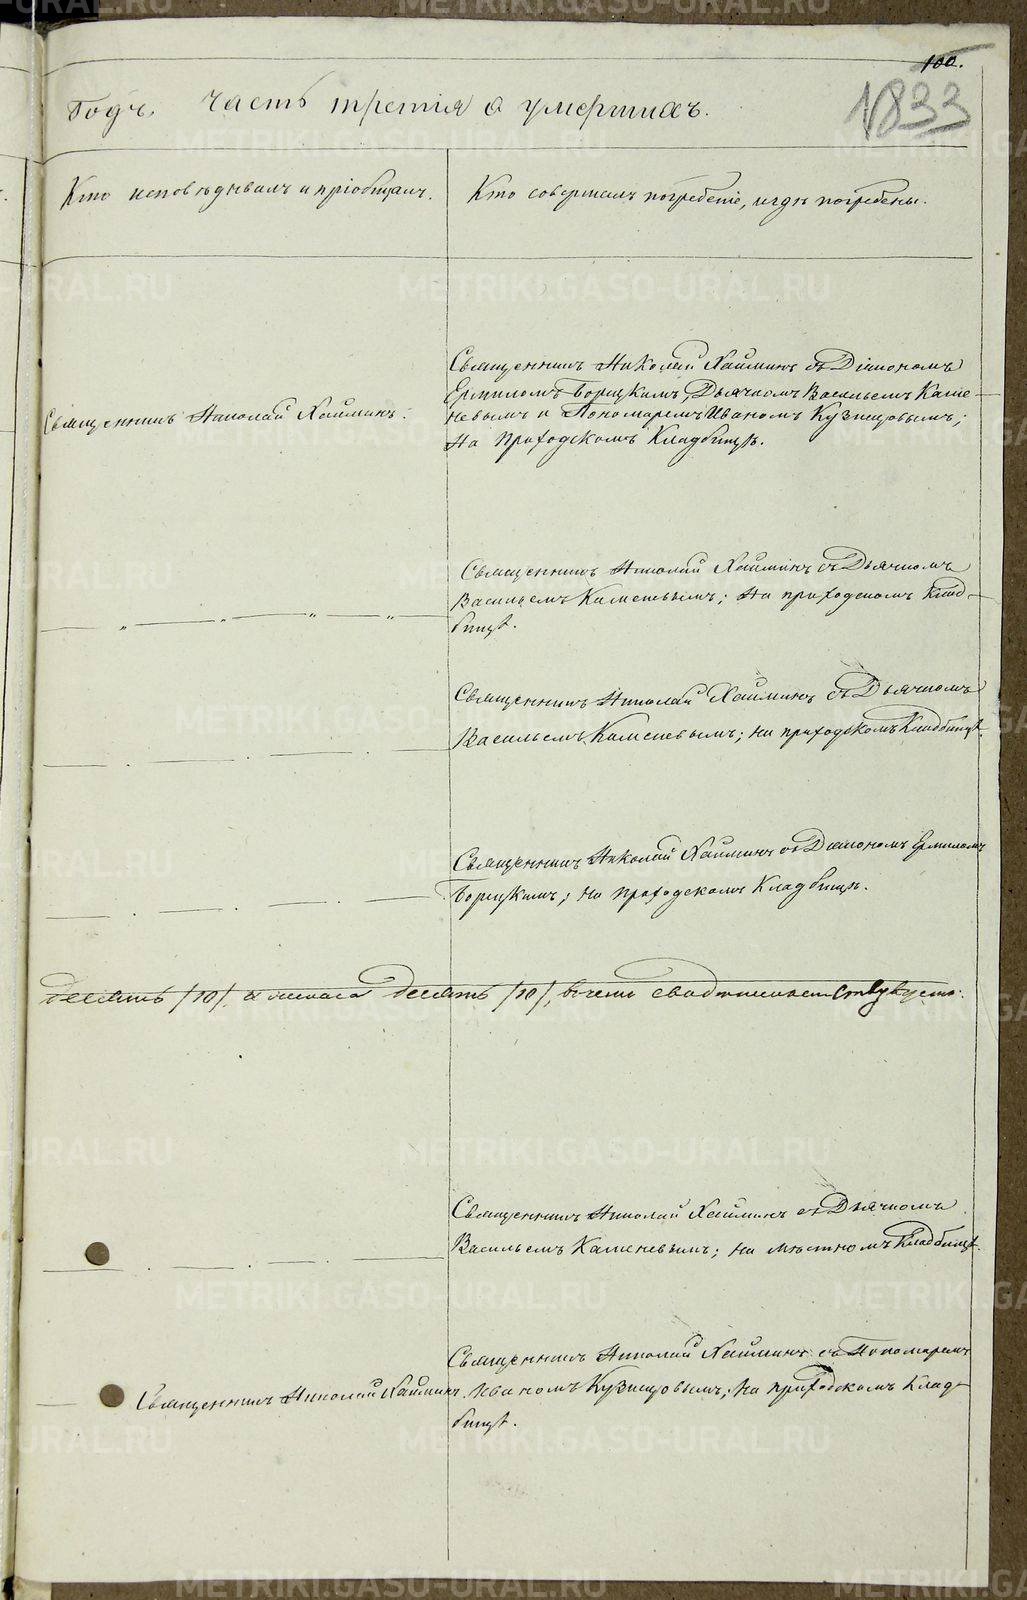 100.
1833
Годъ. Часть третія о умершихъ.
Кто исповѣдывалъ и пріобщалъ.
Кто совершалъ погребеніе, и гдѣ погребены.
Священникъ Николай Хайминъ съ Діакономъ
Ермиломъ Борецкимъ, Дьячкомъ Васильемъ Каме-
невымъ и Пономаремъ Иваномъ Кузнецовымъ;
На Приходскомъ Кладбищѣ.
Священникъ Николай Хайминъ.
Священникъ Николай Хайминъ съ Дьячкомъ
Васильемъ Каменевымъ; На приходскомъ Клад-
бищѣ.
Священникъ Николай Хайминъ съ Дьячкомъ
Васильемъ Каменевымъ; на приходскомъ Кладбищѣ.
Священникъ Николай Хайминъ съ Діакономъ Ермиломъ
Борецкимъ; на приходскомъ Кладбищѣ.
десять /10/. а женска десять /10/, въ чемъ свидѣтельствуемъ.
Священникъ Николай Хайминъ съ Дьячкомъ
Васильемъ Каменевымъ; на мѣстномъ Кладбищѣ.
Священникъ Николай Хайминъ съ Пономаремъ
Иваномъ Кузнецовымъ; На приходскомъ Клад-
бищѣ.
Священникъ Николай Хайминъ.
METRIKI.GASO-URAL.RU